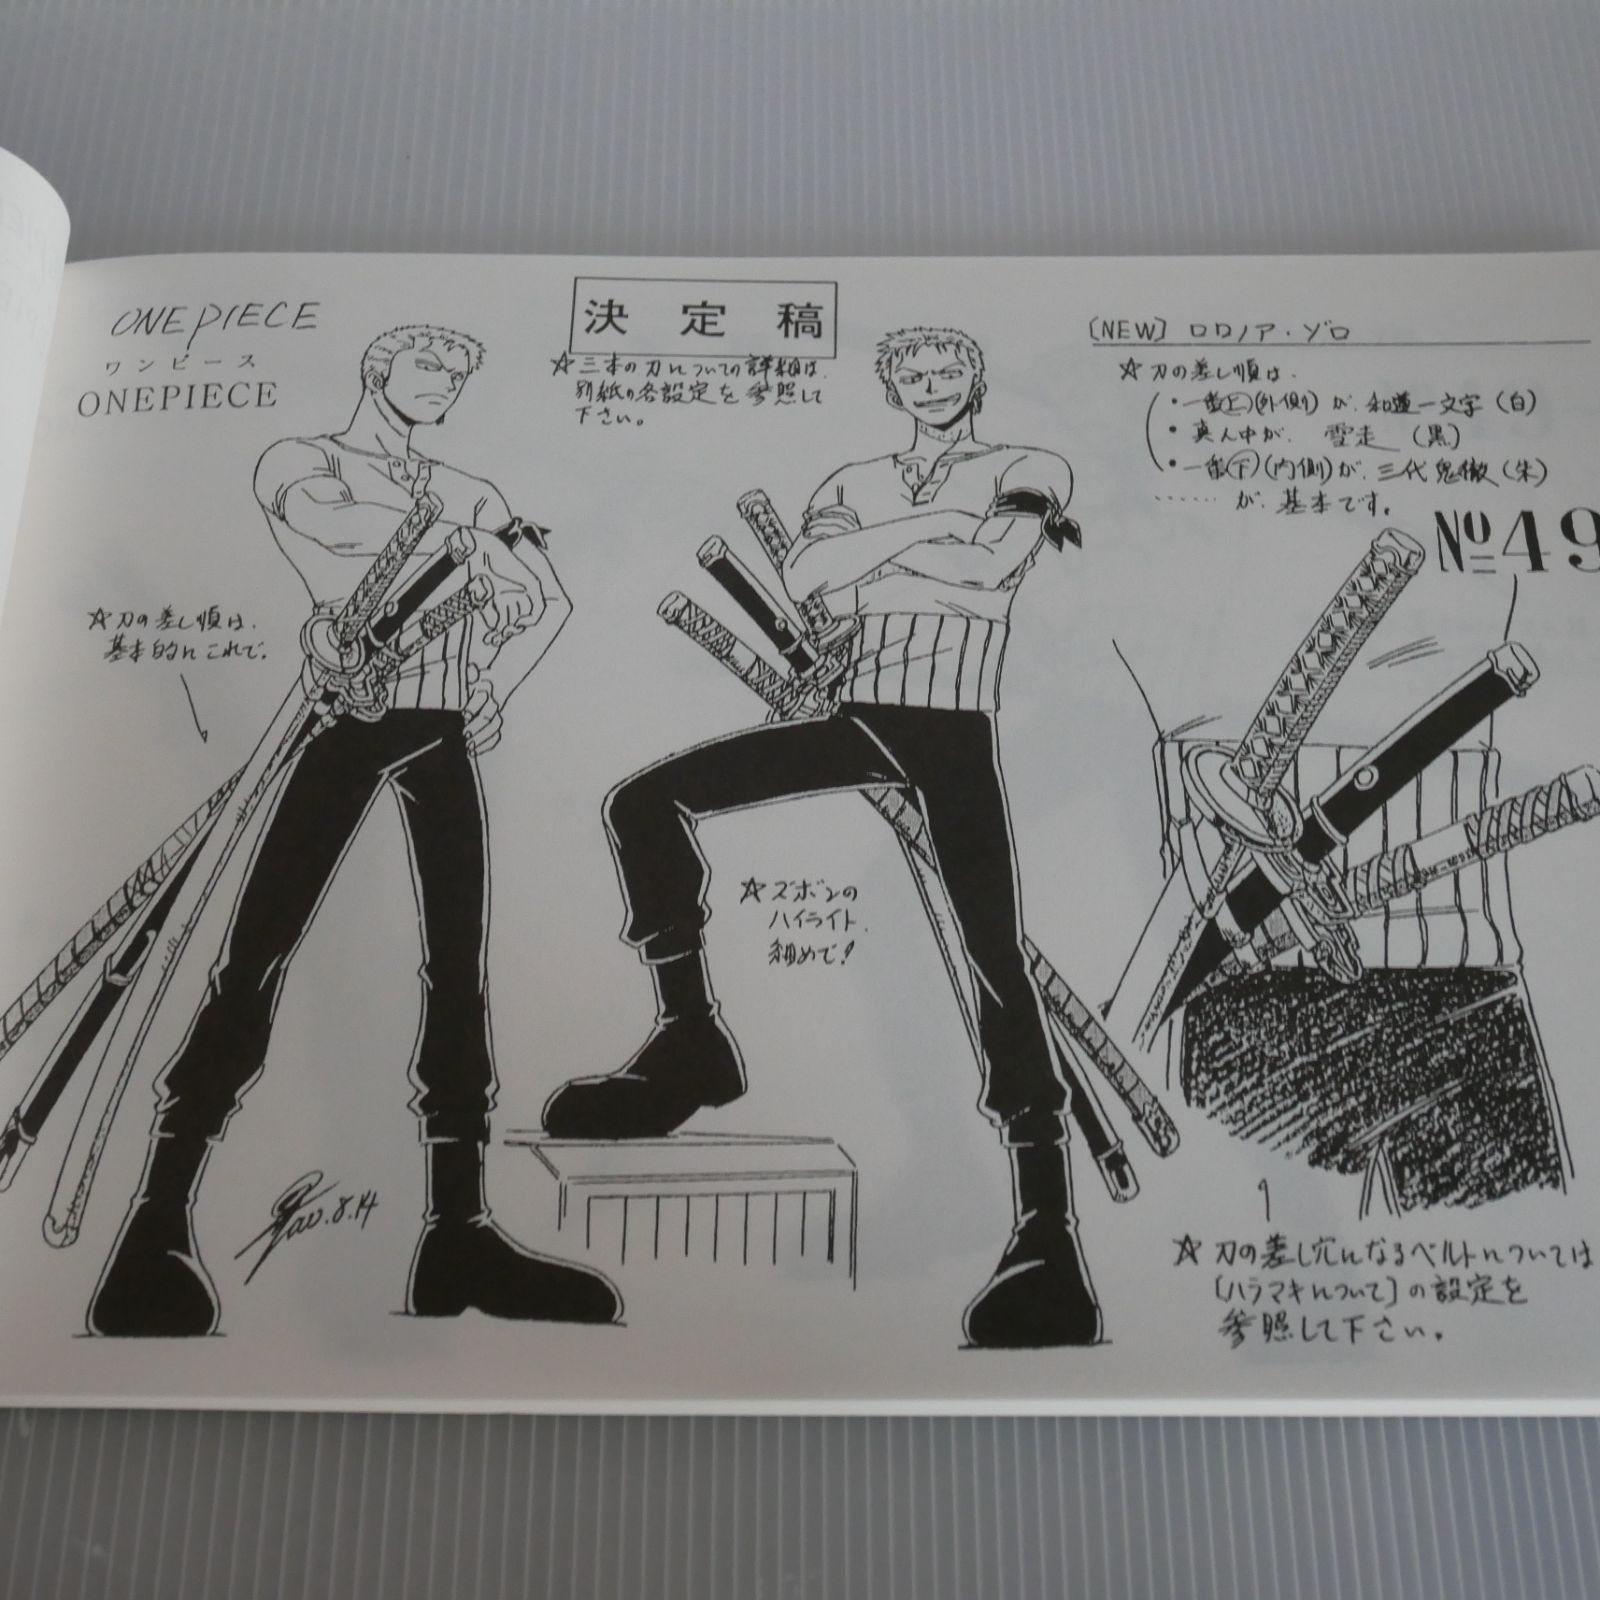 ONE PIECE
ワンピース
ONEPIECE
決定稿
☆三本の刀についての詳細は、
別紙の各設定を参照して
下さい。
[NEW] ロロノア・ゾロ
☆刀の差し順は、
・一番(上)(外側)が、和道一文字(白)
・真ん中が、雪走(黒)
・一番(下)(内側)が、三代鬼徹(朱)
……が、基本です。
No49
☆刀の差し順は、
基本的にこれで。
☆ズボンの
ハイライト、
細めで!
8.14
☆刀の差し穴になるベルトについては
[ハラマキについて]の設定を
参照して下さい。